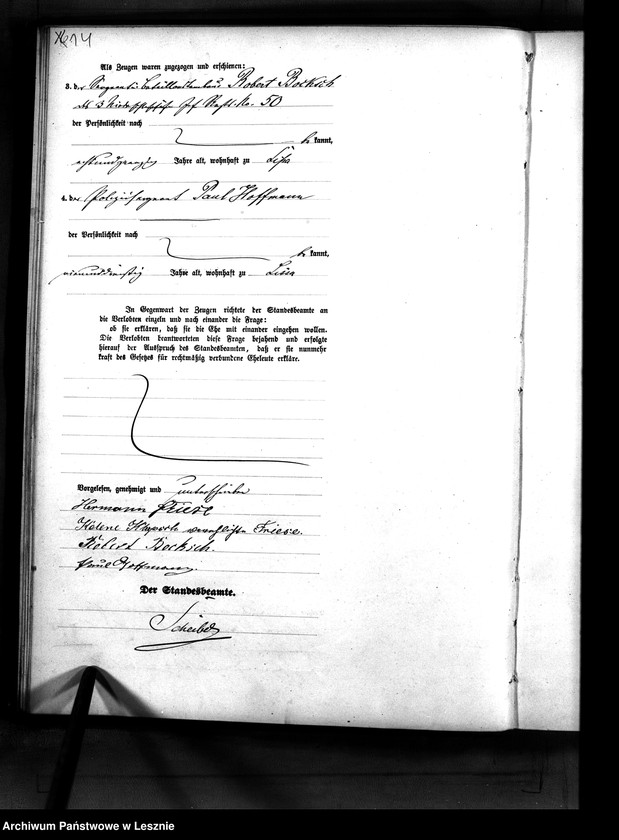 614
Als Zeugen waren zugezogen und erschienen:
3. der Sergeant Robert Bocksch
No. 50
der Persönlichkeit nach
be kannt,
achtundzwanzig Jahre alt, wohnhaft zu Lissa
4. der Polizeisergeant Paul Hoffmann
der Persönlichkeit nach
be kannt,
vierunddreißig Jahre alt, wohnhaft zu Lissa
In Gegenwart der Zeugen richtete der Standesbeamte an
die Verlobten einzeln und nach einander die Frage:
ob sie erklären, daß sie die Ehe mit einander eingehen wollen.
Die Verlobten beantworteten diese Frage bejahend und erfolgte
hierauf der Ausspruch des Standesbeamten, daß er sie nunmehr
kraft des Gesetzes für rechtmäßig verbundene Eheleute erkläre.
Vorgelesen, genehmigt und unterschrieben
Hermann Friese
Helene verehelichte Friese.
Robert Bocksch.
Paul Hoffmann.
Der Standesbeamte.
Archiwum Państwowe w Lesznie